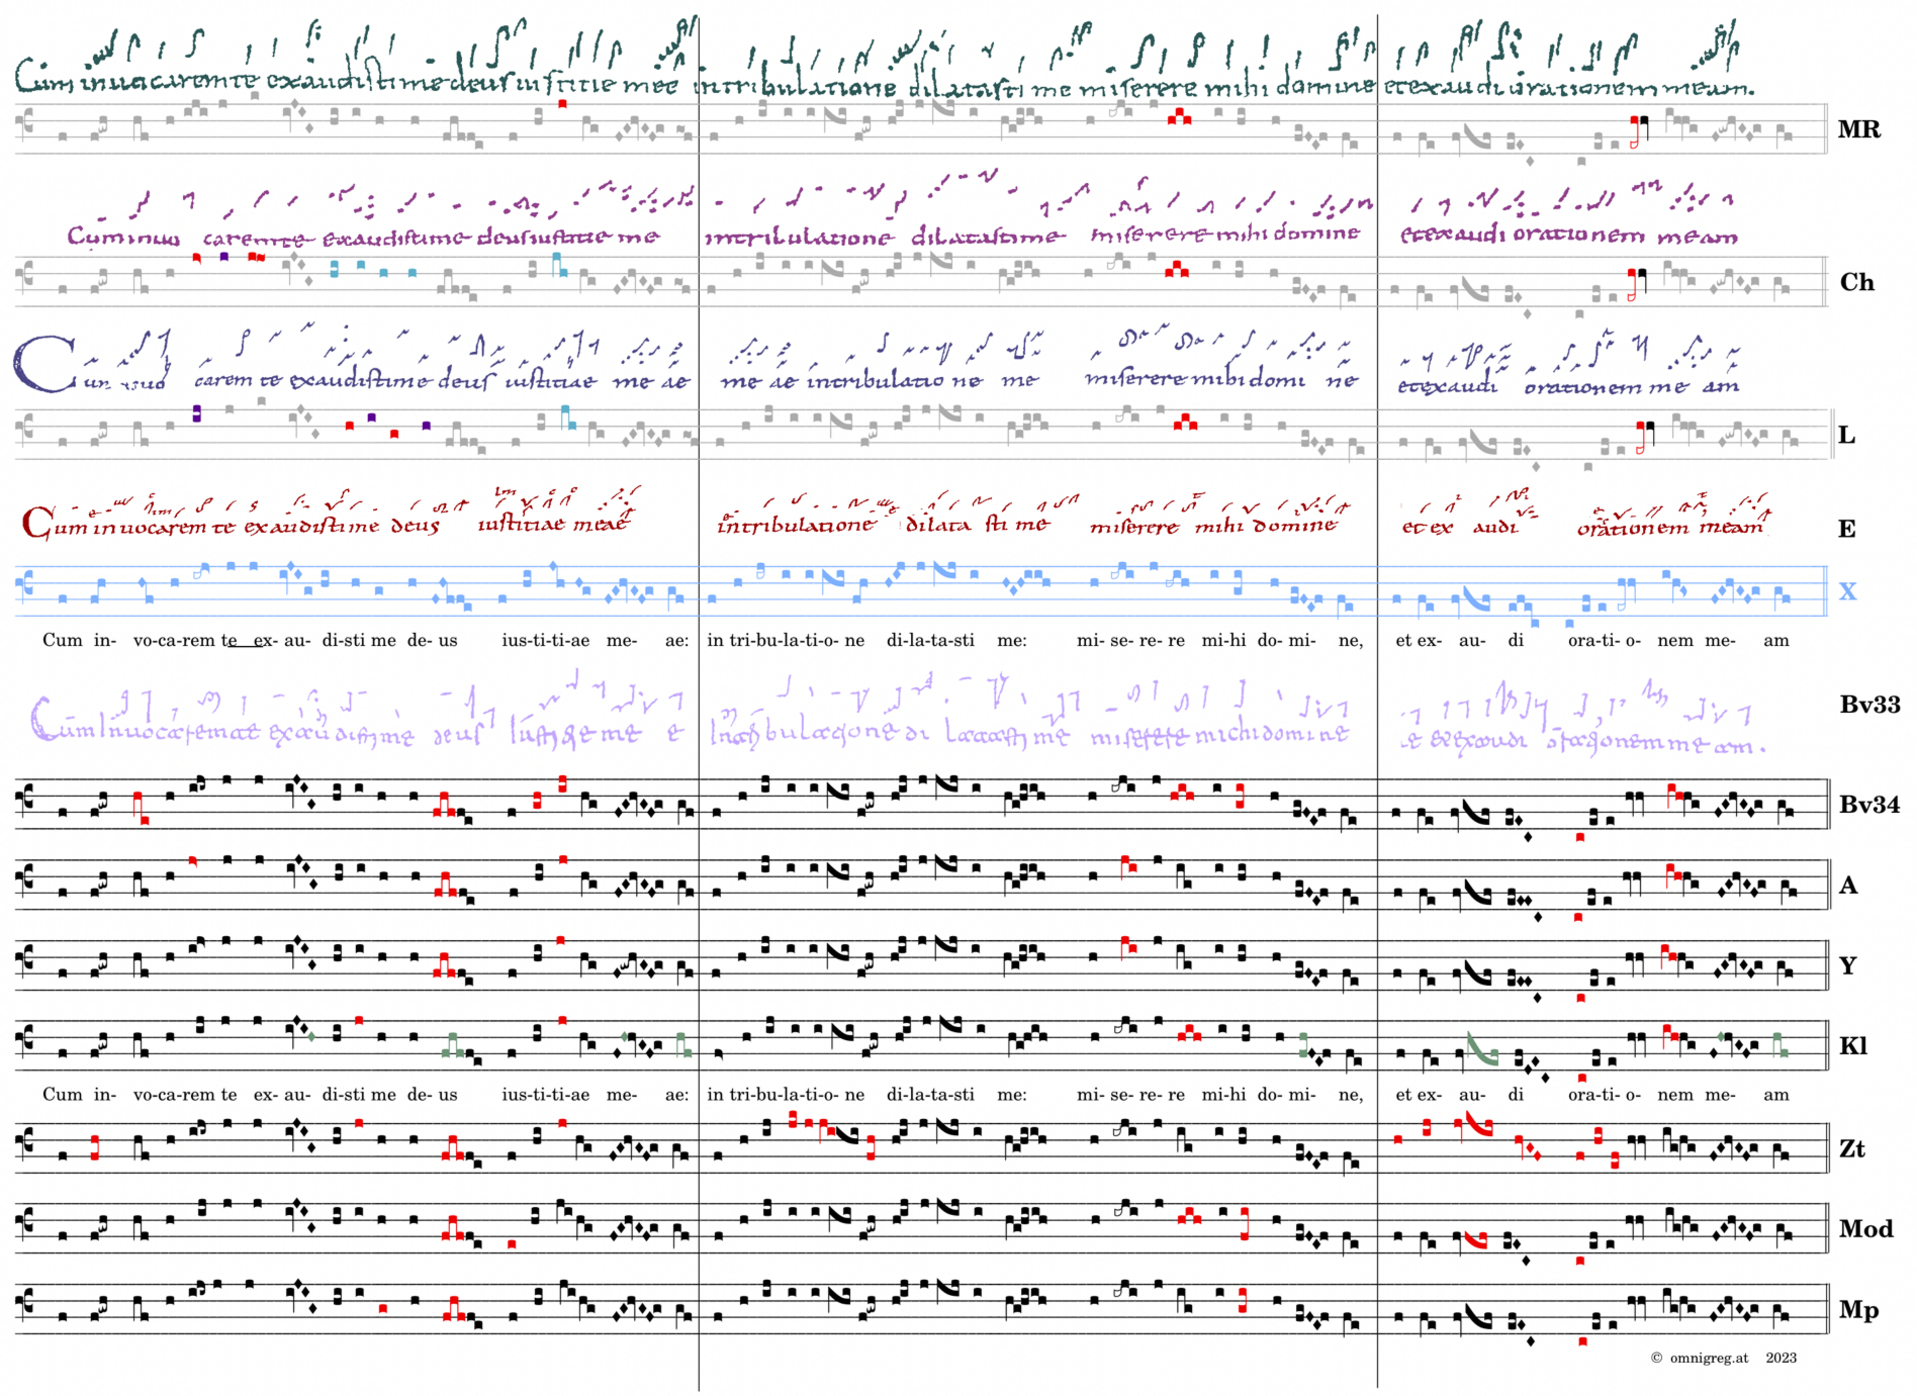 Cum inuocarem te exaudisti me deus iustitie mee in tribulatione dilatasti me miserere mihi domine et exaudi orationem meam.
MR
Cum inuo carem te exaudisti me deus iustitie me intribulatione dilatasti me miserere mihi domine et exaudi orationem meam
Ch
Cum inuo carem te exaudisti me deus iustitiae me ae me ae intribulatio ne me miserere mihi domi ne et exaudi orationem me am
L
Cum inuocarem te exaudisti me deus iustitiae meae intribulatione dilata sti me miserere mihi domine et ex audi orationem meam
E
X
Cum in- vo-ca-rem te ex- au- di-sti me de- us ius-ti-ti-ae me- ae: in tri-bu-la-ti-o- ne di-la-ta-sti me: mi- se- re- re mi-hi do- mi- ne, et ex- au- di ora-ti- o- nem me- am
Bv33
Bv34
A
Y
Kl
Cum in- vo-ca-rem te ex- au- di-sti me de- us ius-ti-ti-ae me- ae: in tri-bu-la-ti-o- ne di-la-ta-sti me: mi- se- re- re mi-hi do- mi- ne, et ex- au- di ora-ti- o- nem me- am
Zt
Mod
Mp
© omnigreg.at 2023